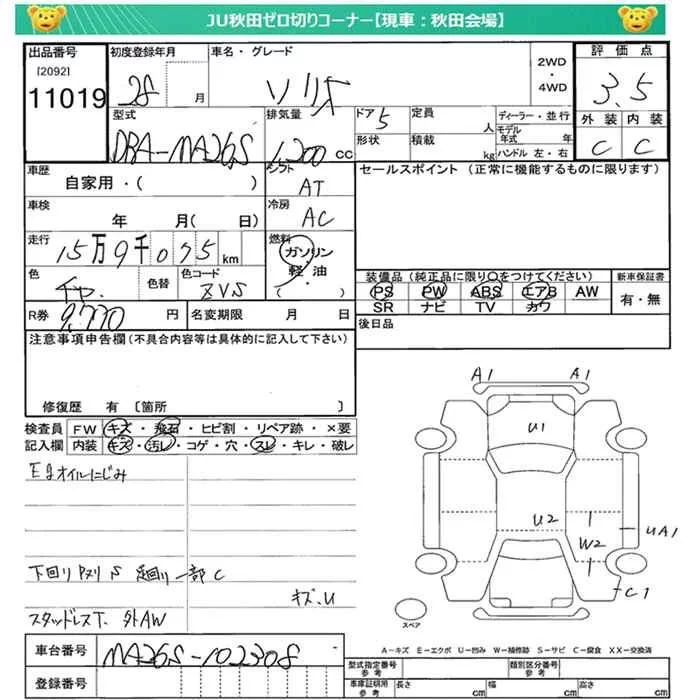 JU秋田ゼロ切りコーナー【現車：秋田会場】
出品番号 初度登録年月 車名・グレード 評価点
[2092]
11019
28 月 ソリオ 2WD ・ 4WD 3.5
型式 排気量 ドア 定員 ディーラー・並行 外装 内装
DBA-MA26S 1,200 cc 5 人 モデル年式 年 C C
形状 積載 kg ハンドル 左・右
車歴 シフト セールスポイント（正常に機能するものに限ります）
自家用・( ) AT
車検 冷房
年 月( 日) AC
走行 燃料
15万9千075km ガソリン
軽・油
( )
色 色替 色コード ZVS
装備品（純正品に限り○をつけてください） 新車保証書
PS PW ABS エアB AW 有・無
SR ナビ TV カワ
R券 9,770 円 名変期限 月 日
後日品
注意事項申告欄（不具合内容等は具体的に記入して下さい）
修復歴 有 〔箇所 〕
検査員 FW キズ・飛石・ヒビ割・リペア跡・×要
記入欄 内装 キズ・汚レ・コゲ・穴・スレ・キレ・破レ
Egオイルにじみ
下回りPヌリ S 足回り一部C
キズ.U
スタッドレスT. 外AW
A1 A1
U1
U2
UA1
W2
C1
スペア
A－キズ E－エクボ U－凹み W－補修跡 S－サビ C－腐食 XX－交換済
車台番号 MA26S-102308
登録番号
型式指定番号 参考 類別区分番号 参考
車庫証明用 参考 長さ cm 幅 cm 高さ cm